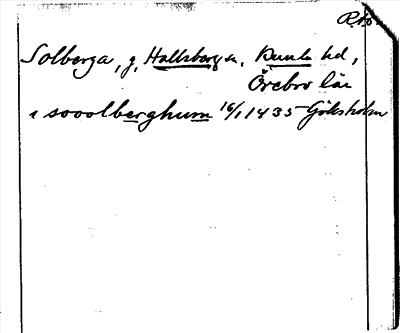 Solberga, g, Hallsbergs sn, Kumla hd,
Örebro län
i sooolberghum 16/1 1435 Göksholm